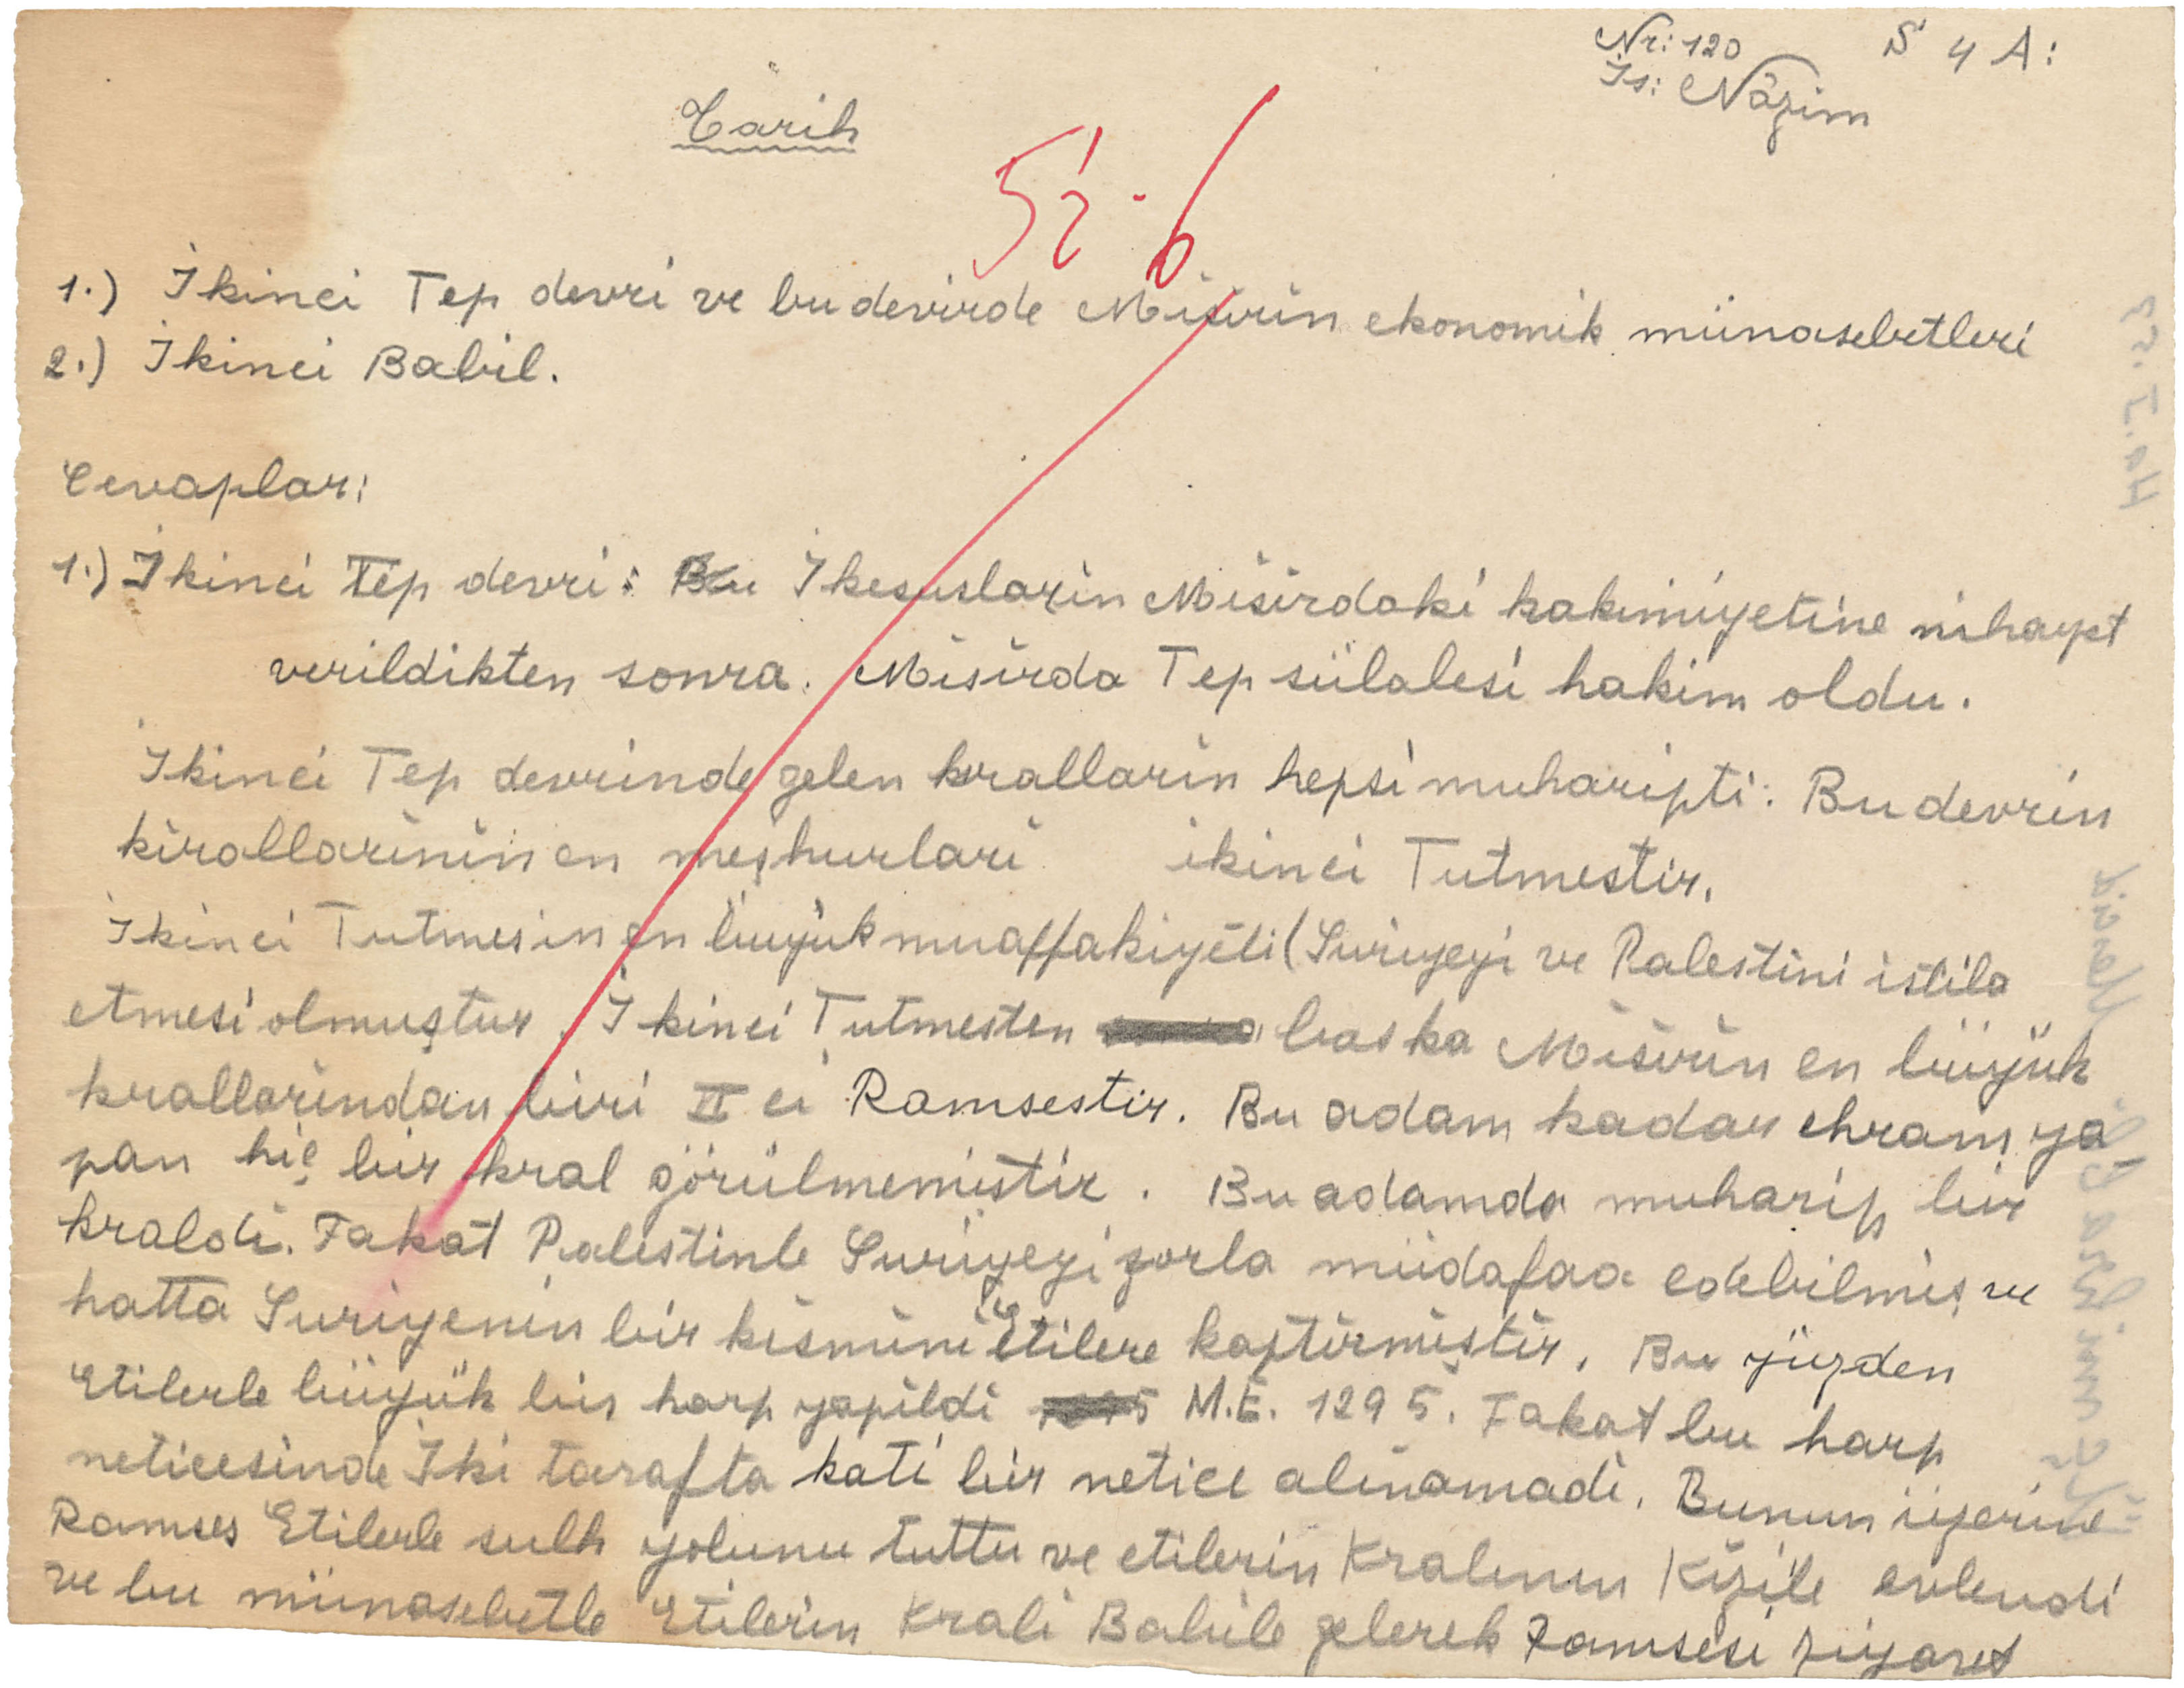 Nr: 120 S 4 A:
İs: Nâzim
Tarih
5½-6
1.) İkinci Tep devri ve bu devirde Misirin ekonomik münasebetleri
2.) İkinci Babil.
Cevaplar:
1.) İkinci Tep devri: Bu İkesuslarin Misirdaki hakimiyetine nihayet
verildikten sonra. Misirda Tep sülalesi hakim oldu.
İkinci Tep devrinde gelen kralların hepsi muharipti. Bu devrin
kirallarinin en meşhurlari ikinci Tutmestir.
İkinci Tutmesin en büyük muaffakiyeti (Suriyeyi ve Palestini istila
etmesi olmuştur. İkinci Tutmesten baska Misirin en büyük
krallarindan biri II ci Ramsestir. Bu adam kadar ehram ya
pan hiç bir kral görülmemistir. Bu adamda muharip bir
kraldi. Fakat Palestinle Suriyeyi zorla müdafaa edebilmiş ve
hatta Suriyenin bir kismini Etilere kaptirmiştir. Bu yüzden
Etilerle büyük bir harp yapildi M.E. 1295. Fakat bu harp
neticesinde İki tarafta kati bir netice alinamadi. Bunun üzerine
Ramses Etilerle sulh yolunu tuttu ve etilerin Kralinin Kizile evlendi
ve bu münasebetle Etilerin Krali Babile gelerek Ramsesi ziyaret